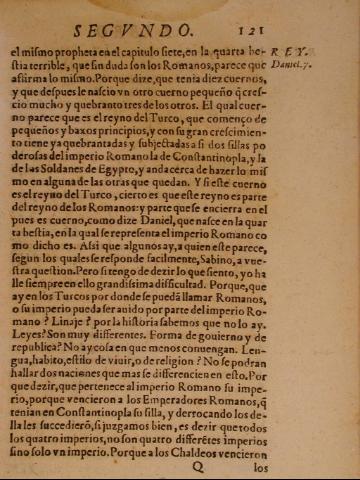 SEGVNDO. 121
el mismo propheta en el capitulo siete, en la quarta be- REY.
stia terrible, que sin duda son los Romanos, parece que Daniel. 7.
affirma lo mismo. Porque dize, que tenia diez cuernos,
y que despues le nascio vn otro cuerno pequeño q̃ cres-
cio mucho y quebranto tres de los otros. El qual cuer-
no parece que es el reyno del Turco, que començo de
pequeños y baxos principios, y con su gran crescimien-
to tiene ya quebrantadas y subjectadas a si dos sillas po
derosas del imperio Romano la de Constantinopla, y la
de los Soldanes de Egypto, y anda cerca de hazer lo mis
mo en alguna de las otras que quedan. Y si este cuerno
es el reyno del Turco, cierto es que este reyno es parte
del reyno de los Romanos: y parte que se encierra en el
pues es cuerno, como dize Daniel, que nasce en la quar
ta bestia, en la qual se representa el imperio Romano co
mo dicho es. Assi que algunos ay, a quien este parece,
segun los quales se responde facilmente, Sabino, a vue-
stra question. Pero si tengo de dezir lo que siento, yo ha
lle siempre en ello grandissima difficultad. Porque, que
ay en los Turcos por donde se puedã llamar Romanos,
o su imperio pueda ser auido por parte del imperio Ro-
mano? Linaje? por la historia sabemos que no lo ay.
Leyes? Son muy differentes. Forma de gouierno y de
republica? No ay cosa en que menos conuengan. Len-
gua, habito, estilo de viuir, o de religion? No se podran
hallar dos naciones que mas se differencien en esto. Por
que dezir, que pertenece al imperio Romano su impe-
rio, porque vencieron a los Emperadores Romanos, q̃
tenian en Constantinopla su silla, y derrocando los de-
lla les succedierõ, si juzgamos bien, es dezir que todos
los quatro imperios, no son quatro differẽtes imperios
sino solo vn imperio. Porque a los Chaldeos vencieron
Q los